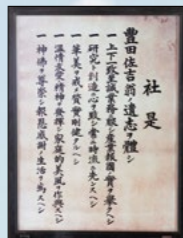 社是
豊田佐吉翁ノ遺志ヲ體シ
一、上下一致、至誠業務ニ服シ産業報國ノ實ヲ擧グベシ
一、研究ト創造ニ心ヲ致シ常ニ時流ニ先ンズベシ
一、華美ヲ戒メ質實剛健タルベシ
一、温情友愛ノ精神ヲ發揮シ家庭的美風ヲ作興スベシ
一、神佛ヲ尊崇シ報恩感謝ノ生活ヲ為スベシ